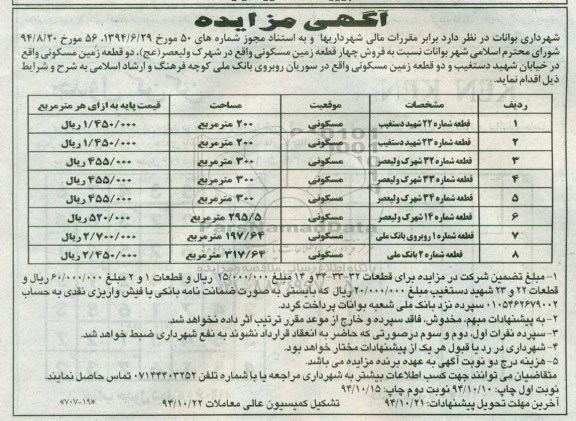 آگهی مزایده
شهرداری بوانات در نظر دارد برابر مقررات مالی شهرداریها و به استناد مجوز شماره های ۵۰ مورخ ۱۳۹۴/۶/۲۹، ۵۶ مورخ ۹۴/۸/۲۰
شورای محترم اسلامی شهر بوانات نسبت به فروش چهار قطعه زمین مسکونی واقع در شهرک ولیعصر(عج)، دو قطعه زمین مسکونی واقع
در خیابان شهید دستغیب و دو قطعه زمین مسکونی واقع در سوریان روبروی بانک ملی کوچه فرهنگ و ارشاد اسلامی به شرح و شرایط
ذیل اقدام نماید.
ردیف مشخصات موقعیت مساحت قیمت پایه به ازای هر مترمربع
۱ قطعه شماره ۲۲ شهید دستغیب مسکونی ۲۰۰ مترمربع ۱/۴۵۰/۰۰۰ ریال
۲ قطعه شماره ۲۳ شهید دستغیب مسکونی ۲۰۰ مترمربع ۱/۴۵۰/۰۰۰ ریال
۳ قطعه شماره ۳۲ شهرک ولیعصر مسکونی ۳۰۰ مترمربع ۴۵۵/۰۰۰ ریال
۴ قطعه شماره ۳۳ شهرک ولیعصر مسکونی ۳۰۰ مترمربع ۴۵۵/۰۰۰ ریال
۵ قطعه شماره ۳۴ شهرک ولیعصر مسکونی ۳۰۰ مترمربع ۴۵۵/۰۰۰ ریال
۶ قطعه شماره ۱۴ شهرک ولیعصر مسکونی ۲۹۵/۵ مترمربع ۵۲۰/۰۰۰ ریال
۷ قطعه شماره ۱ روبروی بانک ملی مسکونی ۱۹۷/۶۴ مترمربع ۲/۷۰۰/۰۰۰ ریال
۸ قطعه شماره ۲ بانک ملی مسکونی ۳۱۷/۶۴ مترمربع ۲/۴۵۰/۰۰۰ ریال
۱- مبلغ تضمین شرکت در مزایده برای قطعات مبلغ ۱۵/۰۰۰/۰۰۰ ریال و قطعات ۱ و ۲ مبلغ ۶۰/۰۰۰/۰۰۰ ریال و
قطعات ۲۲ و ۲۳ شهید دستغیب مبلغ ۲۰/۰۰۰/۰۰۰ ریال که بایستی به صورت ضمانت نامه بانکی یا فیش واریزی نقدی به حساب
۰۱۰۵۴۶۲۶۷۹۰۰۲ سپرده نزد بانک ملی شعبه بوانات پرداخت گردد.
۲- به پیشنهادات مبهم، مخدوش، فاقد سپرده و خارج از موعد مقرر ترتیب اثر داده نخواهد شد.
۳- سپرده نفرات اول، دوم و سوم درصورتی که حاضر به انعقاد قرارداد نشوند به نفع شهرداری ضبط خواهد شد.
۴- شهرداری در رد یا قبول هر یک از پیشنهادات مختار خواهد بود.
۵- هزینه درج دو نوبت آگهی به عهده برنده مزایده می باشد.
متقاضیان می توانند جهت کسب اطلاعات بیشتر به شهرداری مراجعه یا با شماره تلفن ۰۷۱۴۴۴۰۳۲۵۲ تماس حاصل نمایند.
نوبت اول چاپ: ۹۴/۱۰/۱۰ نوبت دوم چاپ: ۹۴/۱۰/۱۵
آخرین مهلت تحویل پیشنهادات: ۹۴/۱۰/۲۱ تشکیل کمیسیون عالی معاملات ۹۴/۱۰/۲۲ «۷۰۷-۱۹»